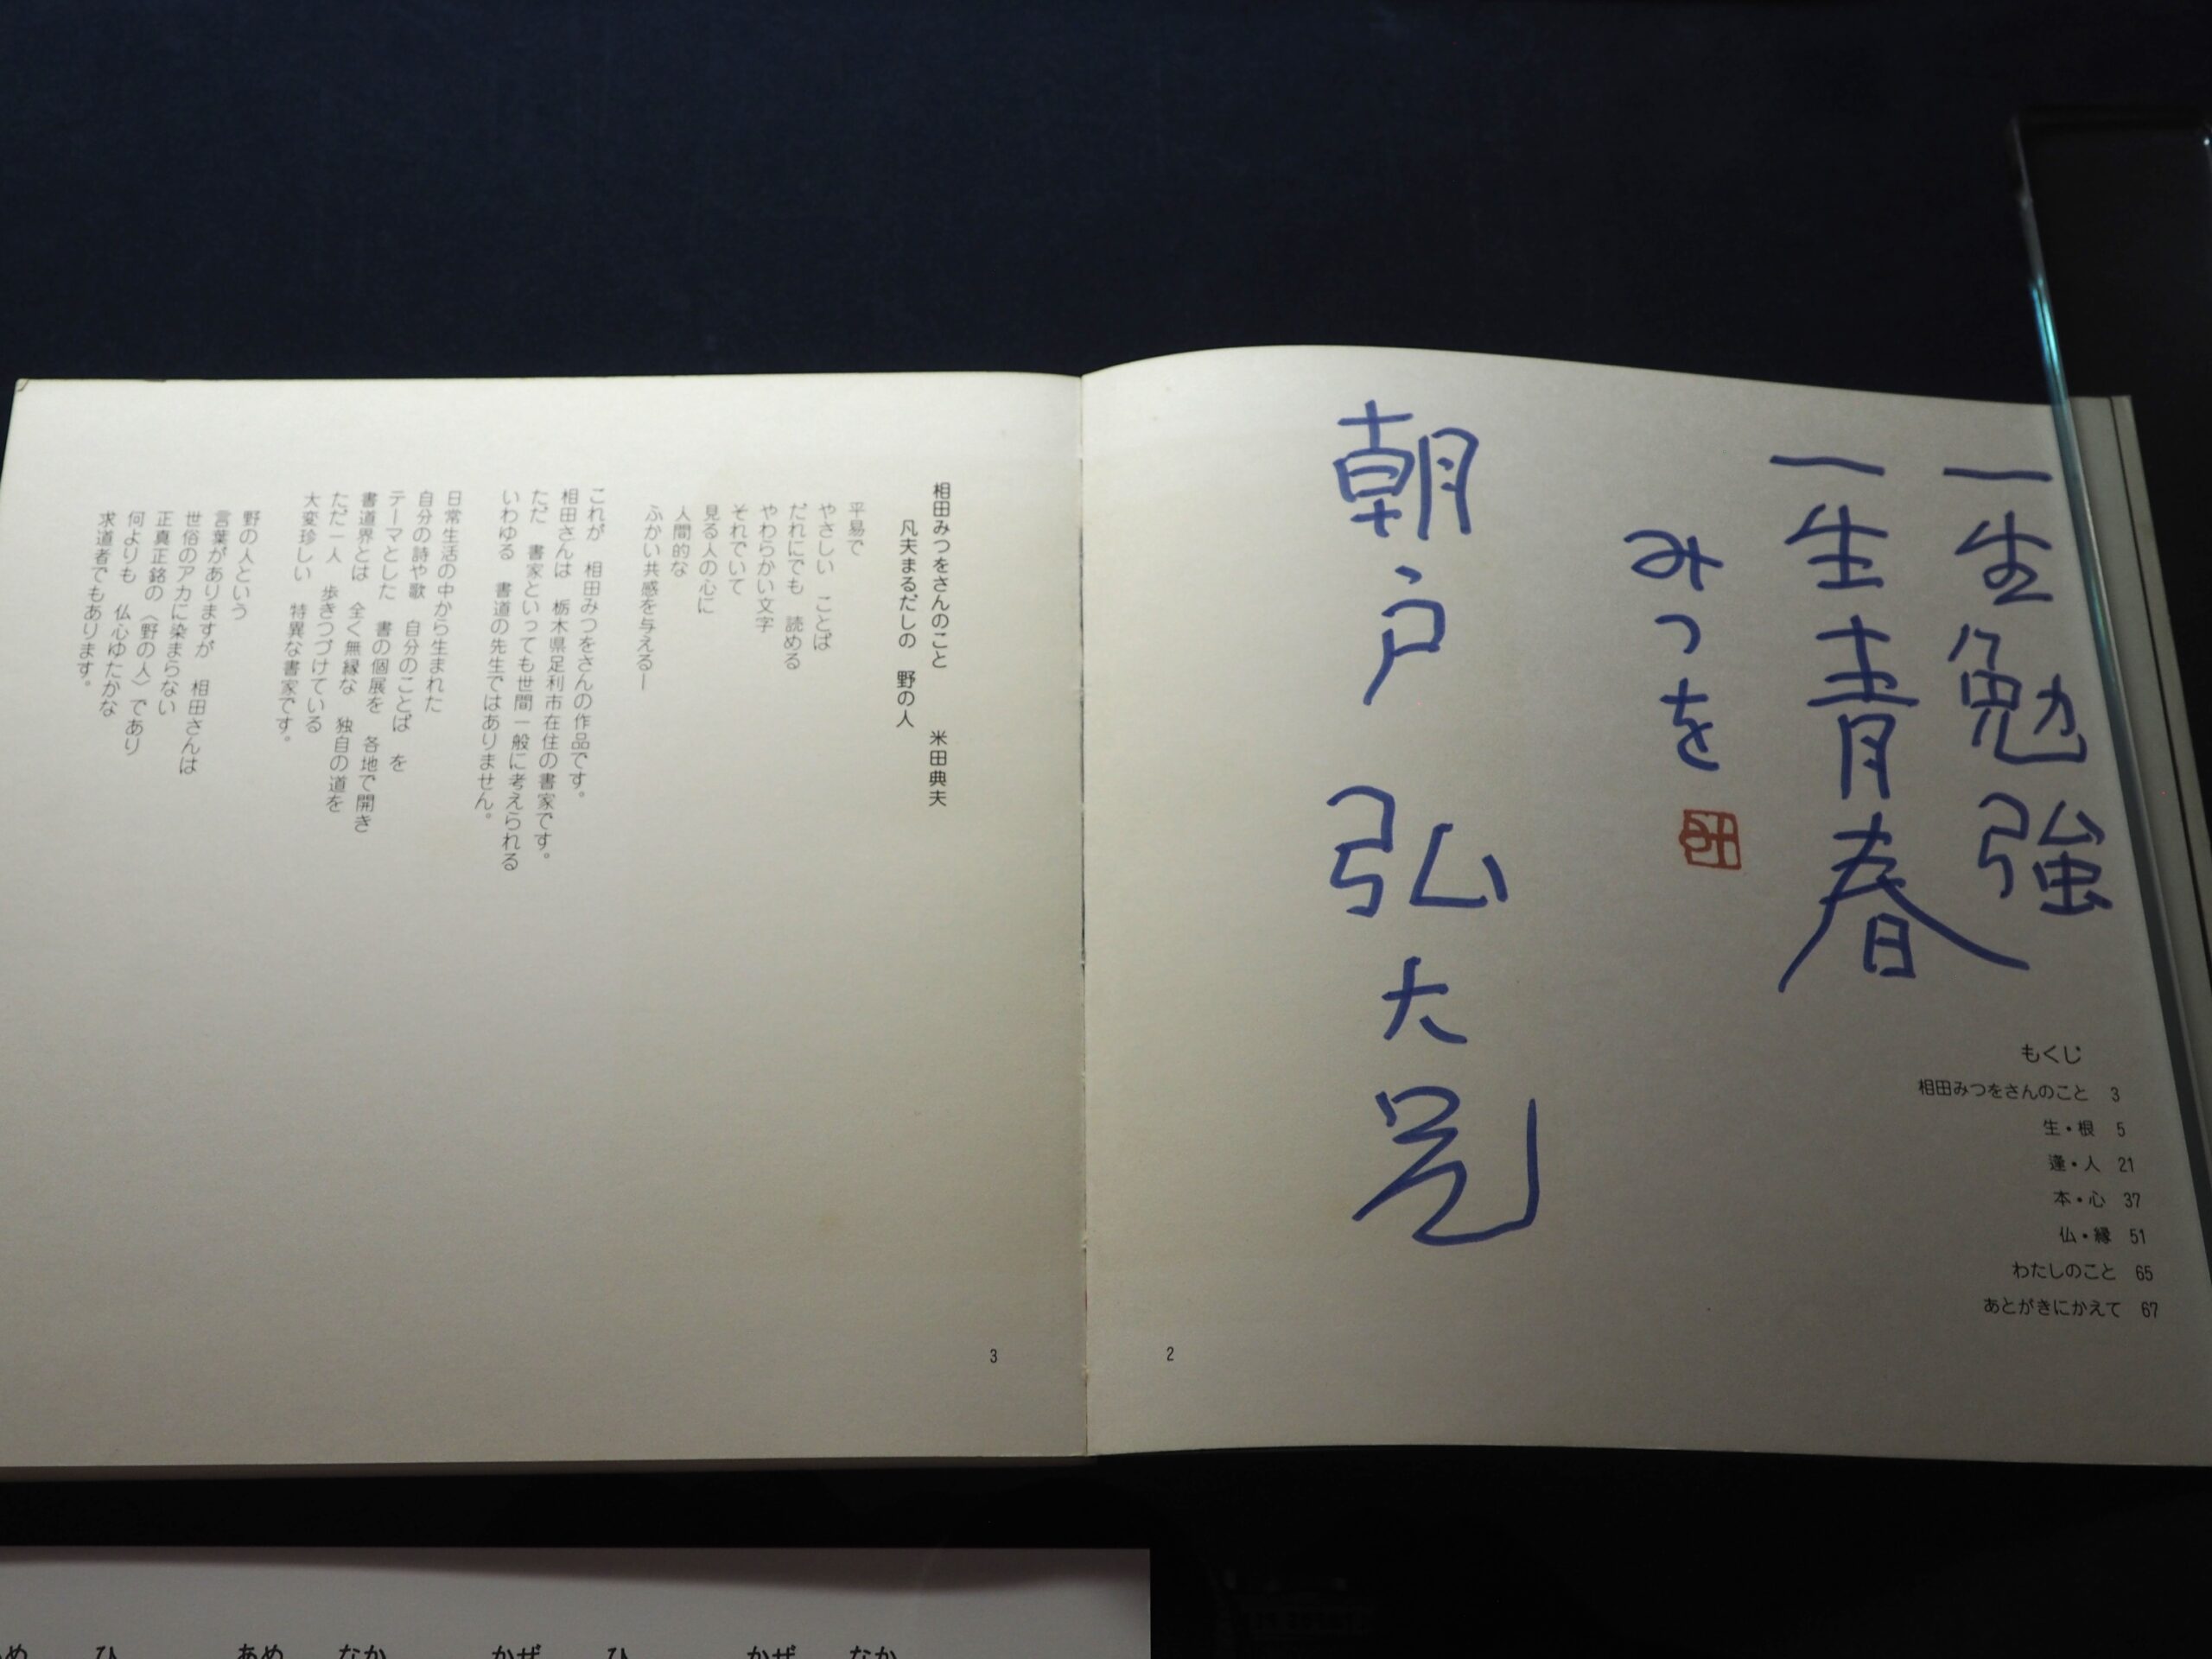 一生勉強
一生青春
みつを
朝戸弘大兄
もくじ
相田みつをさんのこと 3
生・根 5
逢・人 21
本・心 37
仏・縁 51
わたしのこと 65
あとがきにかえて 67
2
相田みつをさんのこと 米田典夫
凡夫まるだしの 野の人
平易で
やさしい ことば
だれにでも 読める
やわらかい文字
それでいて
見る人の心に
人間的な
ふかい共感を与える―
これが 相田みつをさんの作品です。
相田さんは 栃木県足利市在住の書家です。
ただ 書家といっても世間一般に考えられる
いわゆる 書道の先生ではありません。
日常生活の中から生まれた
自分の詩や歌 自分のことば を
テーマとした 書の個展を 各地で開き
書道界とは 全く無縁な 独自の道を
ただ一人 歩きつづけている
大変珍しい 特異な書家です。
野の人という
言葉がありますが 相田さんは
世俗のアカに染まらない
正真正銘の〈野の人〉であり
何よりも 仏心ゆたかな
求道者でもあります。
3
め ひ あめ なか かぜ ひ かぜ なか